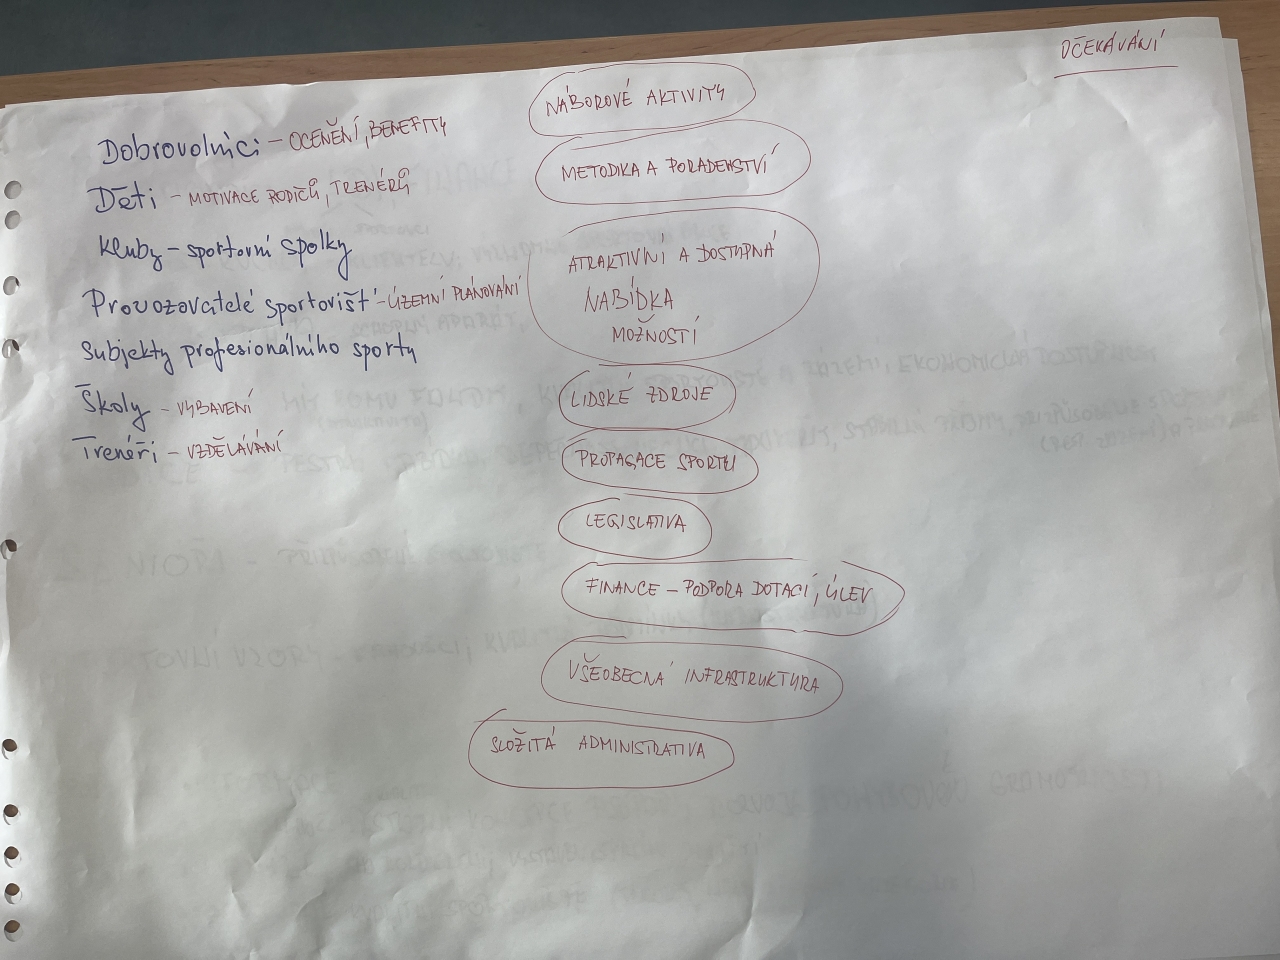 OČEKÁVÁNÍ
Dobrovolníci – OCENĚNÍ, BENEFITY
Děti – MOTIVACE RODIČŮ, TRENÉRŮ
Kluby – sportovní spolky
Provozovatelé sportovišť – ÚZEMNÍ PLÁNOVÁNÍ
Subjekty profesionálního sportu
Školy – VYBAVENÍ
Trenéři – VZDĚLÁVÁNÍ
NÁBOROVÉ AKTIVITY
METODIKA A PORADENSTVÍ
ATRAKTIVNÍ A DOSTUPNÁ
NABÍDKA
MOŽNOSTÍ
LIDSKÉ ZDROJE
PROPAGACE SPORTU
LEGISLATIVA
FINANCE – PODPORA DOTACÍ, ÚLEV
VŠEOBECNÁ INFRASTRUKTURA
SLOŽITÁ ADMINISTRATIVA